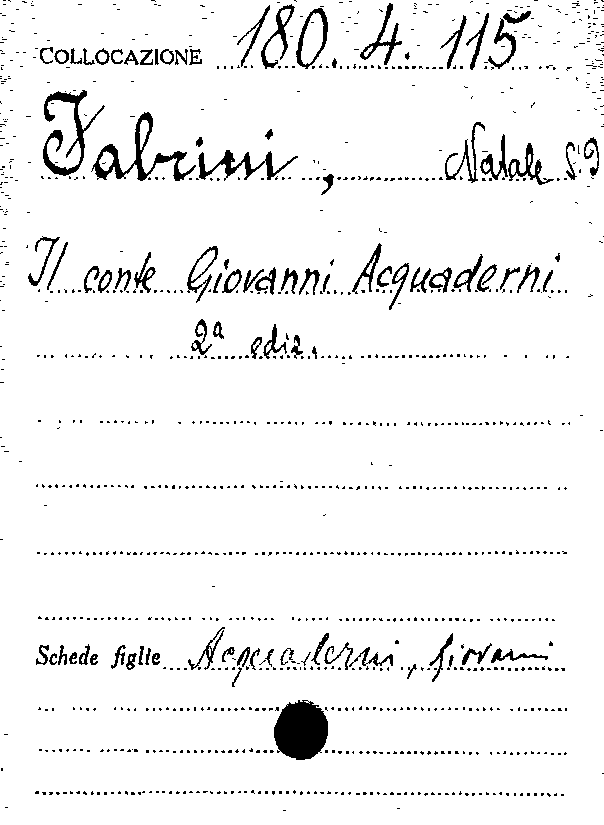 COLLOCAZIONE 180. 4. 115
Fabrini, Natale S.J
Il conte Giovanni Acquaderni
2ª ediz.
Schede figlie Acquaderni, Giovanni